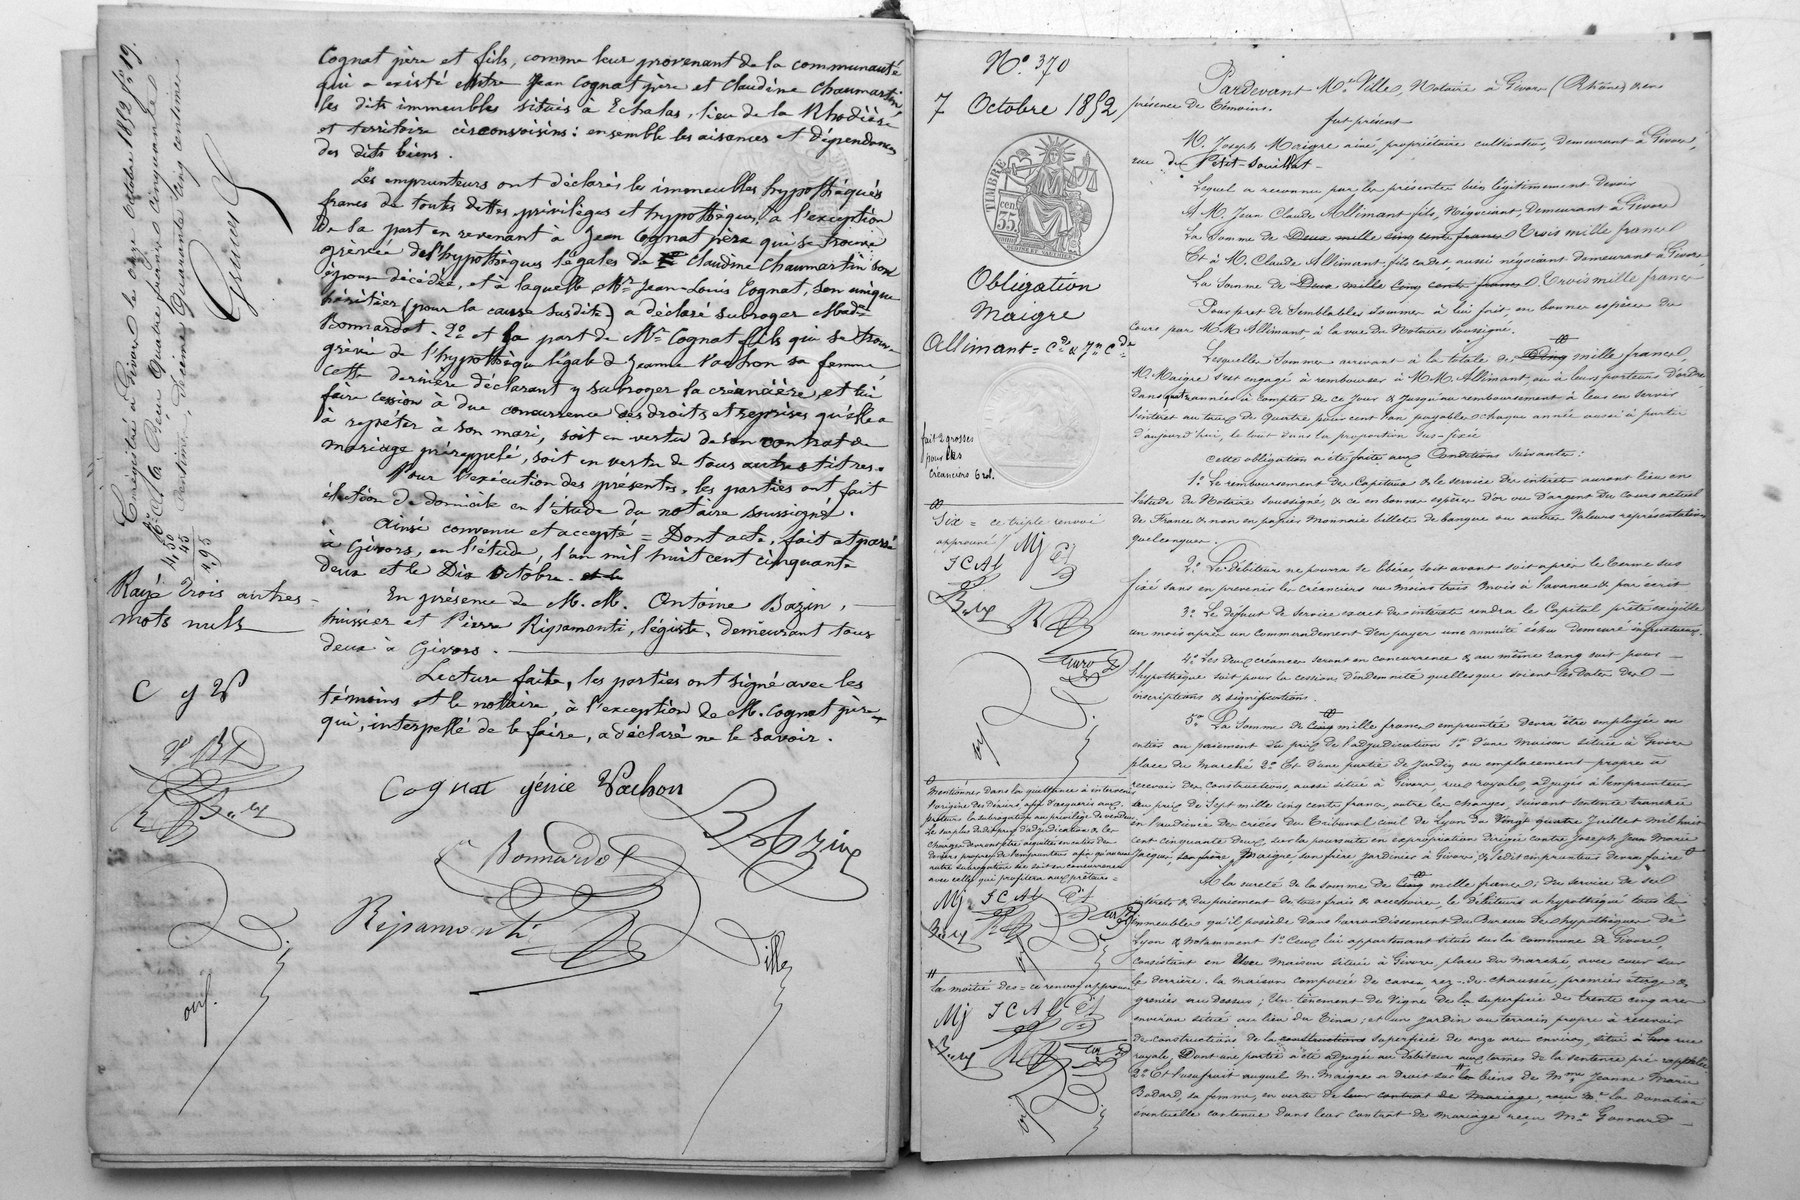 Cognat père et fils, comme leur provenant de la communauté
qui a existé entre Jean Cognat père et Claudine Chaumartin,
les dits immeubles situés à Echalas, lieu de la Rhodière
et territoire circonvoisins : ensemble les aisances et dépendances
des dits biens.
Les emprunteurs ont déclarés les immeubles hypothéqués
francs de toutes dettes, privilèges et hypothèques, à l'exception
de la part en revenant à Jean Cognat père qui se trouve
grévée de l'hypothèque légale de Claudine Chaumartin son
épouse décédée, et à laquelle Mr Jean-Louis Cognat, son unique
héritier (pour la cause susdite) a déclaré subroger Made
Bonnardot. 2o et la part de Mr Cognat fils qui se trouve
grévée de l'hypothèque légale de Jeanne Vachon sa femme
cette dernière déclarant y subroger la créancière, et lui
faire cession à due concurrence des droits et reprises qu'elle a
à répéter à son mari, soit en vertu de son contrat de
mariage prérappelé, soit en vertu de tous autres titres.
Pour l'exécution des présentes, les parties ont fait
élection de domicile en l'étude du notaire soussigné.
Ainsi convenu et accepté = Dont acte, fait et passé
à Givors, en l'étude, l'an mil huit cent cinquante
deux et le Dix Octobre. et le
En présence de M. M. Antoine Bazin,
huissier et Pierre Ripamonti, légiste, demeurant tous
deux à Givors.
Lecture faite, les parties ont signé avec les
témoins et le notaire, à l'exception de M. Cognat père
qui, interpellé de le faire, a déclaré ne le savoir.
Cognat génie Vachon
Bonnardot
Bazin
Ripamonti
Ville
Enregistré à Givors le onze octobre 1852 fo 19.
4,50
45
4,95
Rayé trois autres
mots nuls
No 370
7 Octobre 1852
TIMBRE
cen
35
Obligation
Maigre
Allimant = Cde & Jn Cde
fait 2 grosses
pour les
créanciers 6 rol.
Six = ce triple renvoi
approuvé
Mj
JCAl
Mentionner dans la quittance à intervenir
l'origine des deniers, afin d'acquérir aux
prêteurs la subrogation au privilège de vendeur
Le surplus du dit prix d'adjudication & les
charges devront être aquittés en entier des
deniers propres de l'emprunteur afin qu'aucune
autre subrogation ne soit en concurrence
avec celles qui profitera aux prêteurs =
Mj JCAl
la moitié des = ce renvoi approuvé
Mj JCAl
Pardevant Me Ville, Notaire à Givors (Rhône) & en
présence de Témoins.
fut présent
M. Joseph Maigre ainé, propriétaire cultivateur, demeurant à Givors,
rue du Petit-Souillat
Lequel a reconnu par les présentes bien légitimement devoir
A M. Jean Claude Allimant fils, Négociant, Demeurant à Givors
La somme de Deux mille cinq cents francs Trois mille francs
Et à M. Claude Allimant, fils cadet, aussi négociant demeurant à Givors
La Somme de Deux mille Cinq cents francs Trois mille francs
Pour prêt de semblables sommes à lui fait, en bonnes espèces du
Cours par MM Allimant, à la vue du Notaire soussigné.
Lesquelles sommes arrivant à la totale de Cinq mille francs,
M. Maigre s'est engagé à rembourser à MM. Allimant ou à leurs porteurs d'ordre
Dans quatre années à compter de ce jour & jusqu'au remboursement à leur en servir
l'intérêt au taux de quatre pour cent l'an payable chaque année aussi à partir
d'aujourd'hui, le tout dans la proportion sus-fixée
Cette obligation a été faite aux Conditions suivantes :
1o Le remboursement du Capitaux & le service des intérêts auront lieu en
l'étude du Notaire soussigné, & ce en bonnes espèces d'or ou d'argent du cours actuel
de France & non en papier monnaie billets de banque ou autres Valeurs représentatives
quelconques.
2o Le Débiteur ne pourra se libérer soit avant soit après le terme sus
fixé sans en prévenir les créanciers au moins trois mois à l'avance & par écrit
3o Le défaut de service exact des intérêts rendra le Capital prêté exigible
un mois après un commandement d'en payer une annuité échue demeuré infructueux.
4o Les deux créances seront en concurrence & au même rang soit pour
l'hypothèque soit pour la cession d'indemnité quelles que soient les dates des
inscriptions & significations.
5o La Somme de Cinq mille francs empruntée devra être employée en
entier au paiement du prix de l'adjudication 1o d'une Maison située à Givors
place du Marché 2o Et d'une partie de Jardin ou emplacement propre à
recevoir des constructions, aussi situé à Givors, rue royale, adjugés à l'emprunteur
au prix de Sept mille cinq cents francs, outre les charges, suivant sentence tranchée
en l'audience des criées du Tribunal civil de Lyon du Vingt quatre Juillet mil huit
cent cinquante deux, sur la poursuite en expropriation dirigée contre Joseph Jean Marie
Jacques, son frère, Maigre son frère jardinier à Givors, & ledit emprunteur devra faire
A la sureté de la somme de Cinq mille francs, du service de ses
intérêts & du paiement de tous frais & accessoires, le débiteur a hypothéqué tous les
immeubles qu'il possède dans l'arrondissement du Bureau des hypothèques de
Lyon & notamment 1o Ceux lui appartenant situés sur la commune de Givors,
Consistant en Une Maison située à Givors, place du Marché, avec cour sur
le derrière, la maison composée de caves, rez-de-chaussée, premier étage &
greniers au dessus ; Un tènement de Vigne de la superficie de trente cinq ares
environ situé au lieu du Tina ; et un jardin ou terrain propre à recevoir
de constructions de la constructions superficie de onze ares environ, situé à rue
royale, Dont une partie a été adjugée au débiteur aux termes de la sentence pré rappelée
2o Et l'usufruit auquel M. Maigre a droit sur les biens de Mme Jeanne Marie
Badard, sa femme, en vertu de leur contrat de mariage, reçu Me la donation
éventuelle contenue dans leur contrat de mariage reçu Me Gonnard